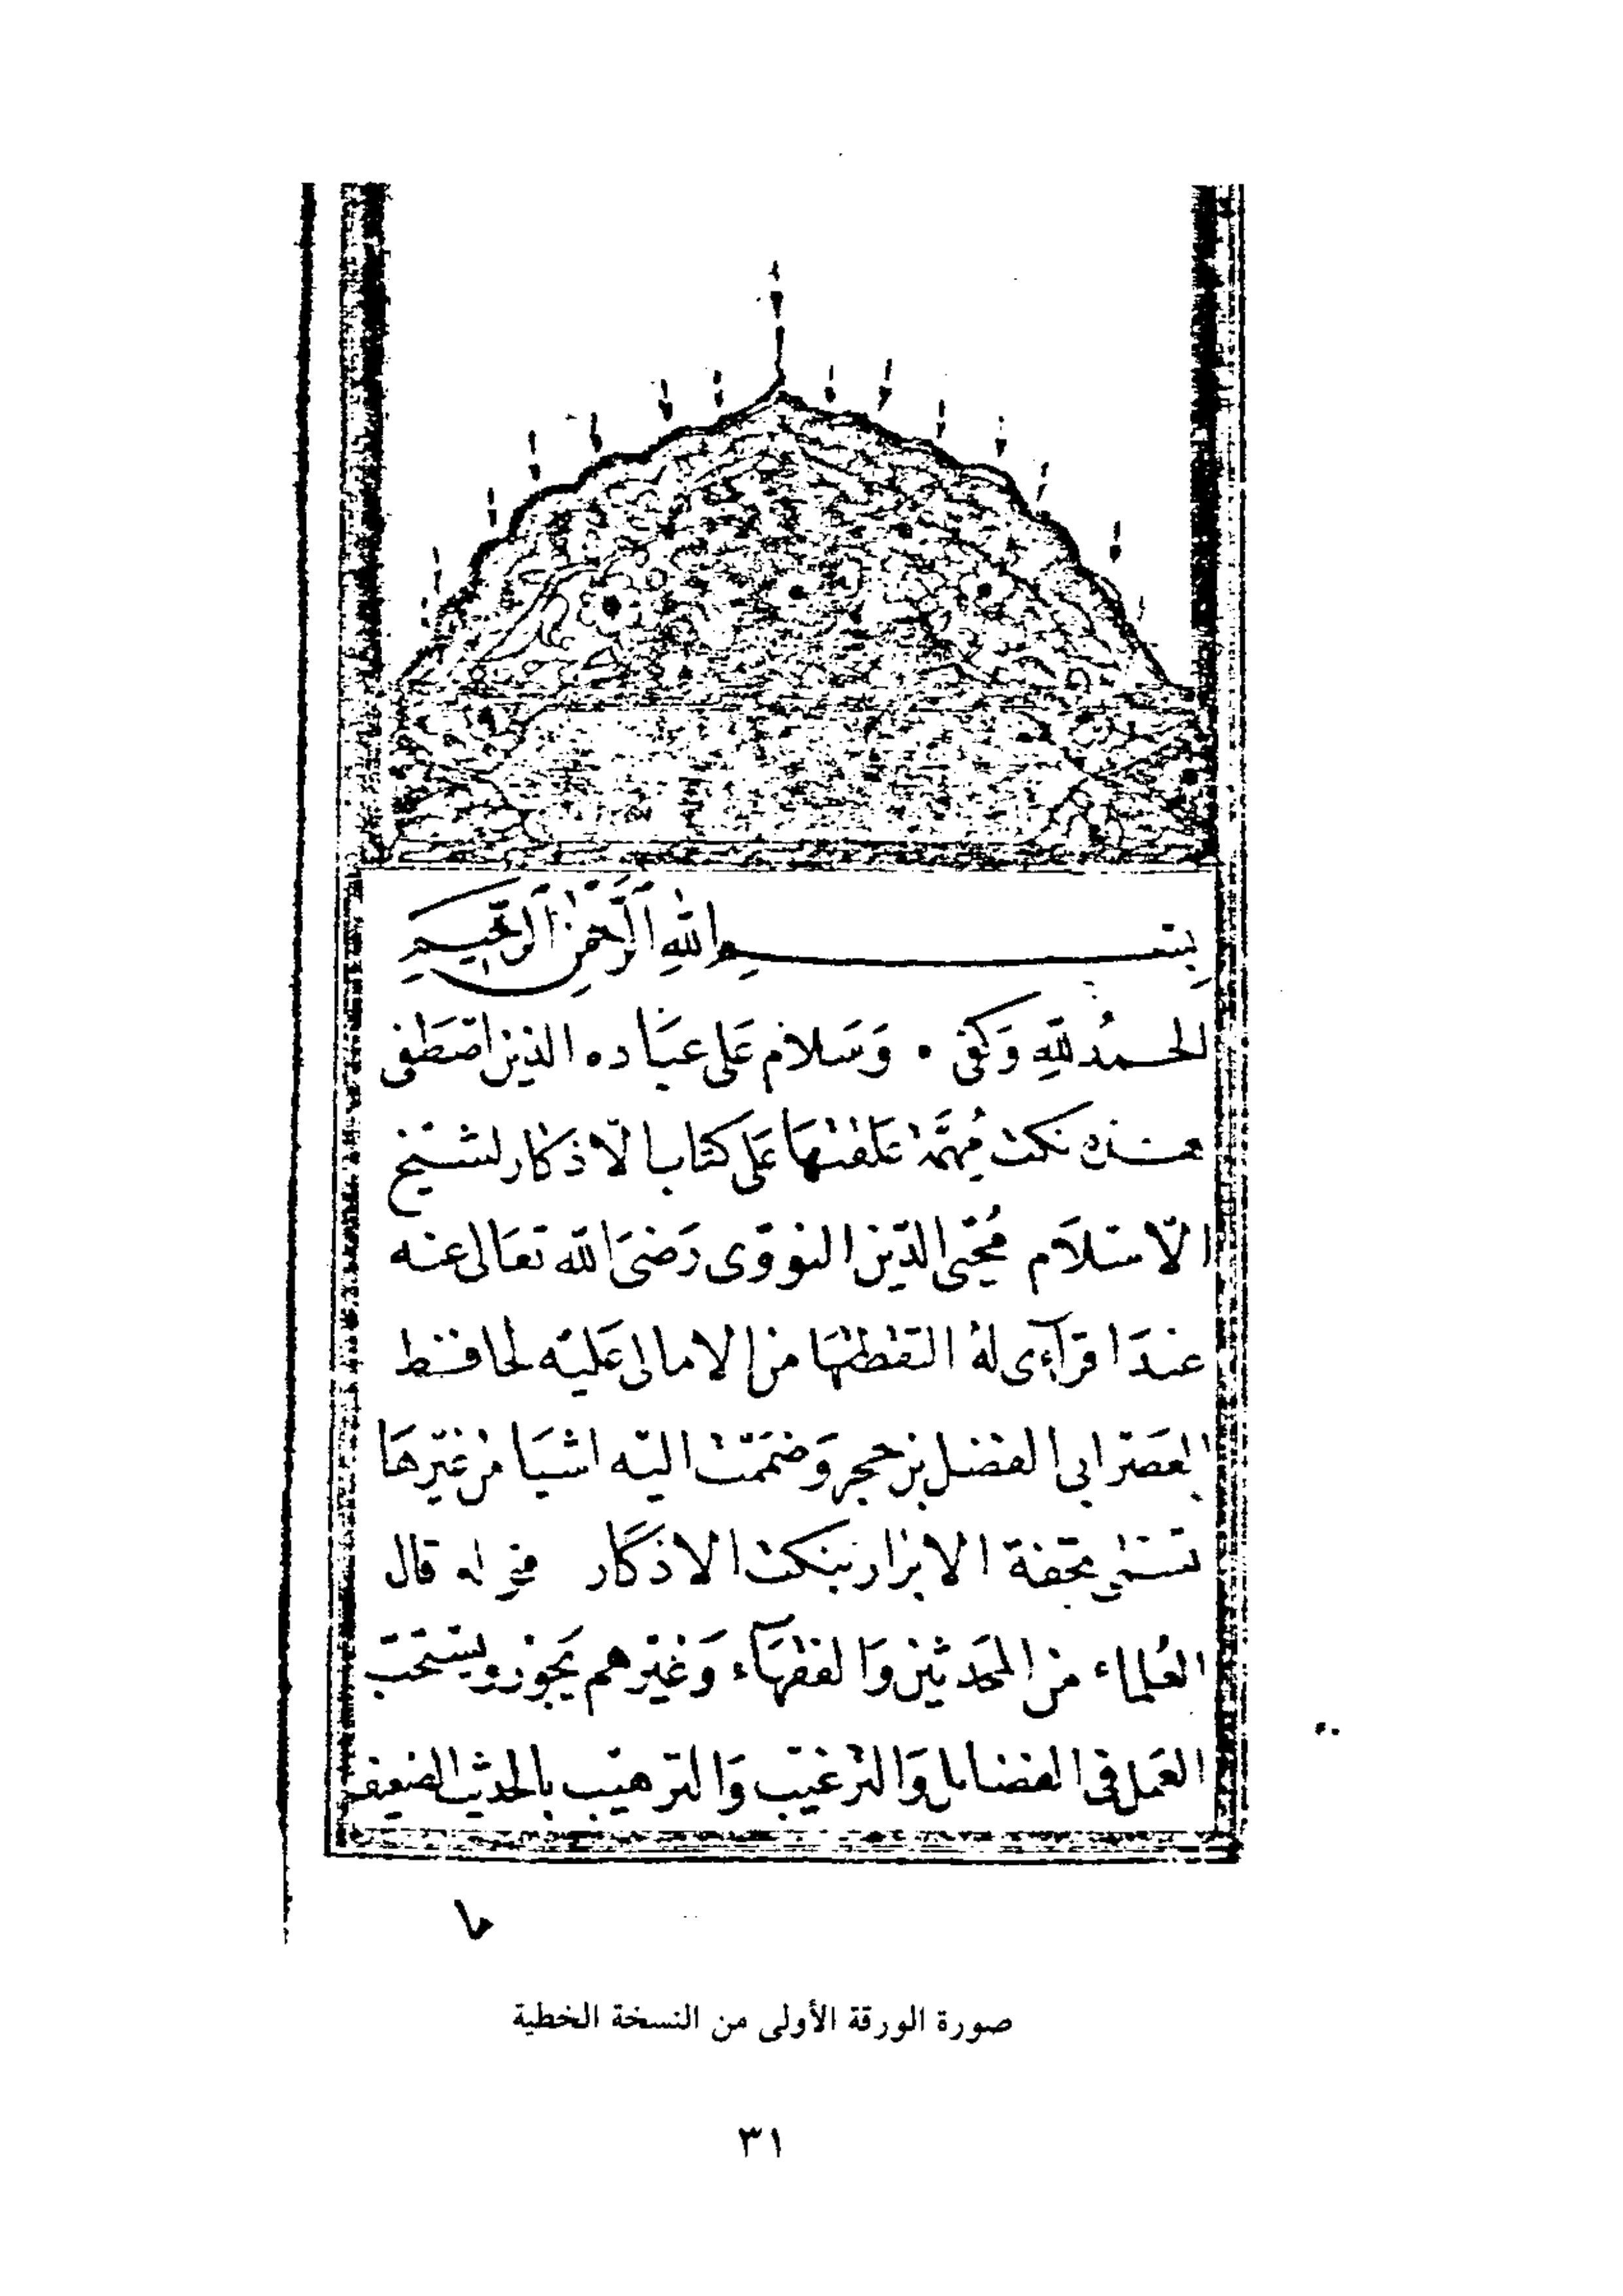 بِسْمِ اللهِ الرَّحْمٰنِ الرَّحِيمِ
الحمدُ للهِ وَكفى . وَسَلام عَلى عبَاده الذين اصْطفى
هذه نكت مُهِمَّة علقتهَا عَلى كتاب الاذكار لشيخ
الاسلَام مُحيى الدّين النووى رَضىَ الله تعَالى عنه
عندَ اقرآءى لهُ التقطتهَا من الامالى عليه لحافظ
العَصْر ابى الفضل بن حجر وَضمَمْت اليه اشيَا من غيرهَا
تسَمى تحفة الابرَار بنكت الاذكَار قال
العُلماء من المحَدثين وَالفقهَآء وَغيرهم يَجوز ويسْتحَب
العَمل فى الفضائل وَالترْغيب وَالترهيب بالحديث الضعيف
صورة الورقة الأولى من النسخة الخطية
٣١